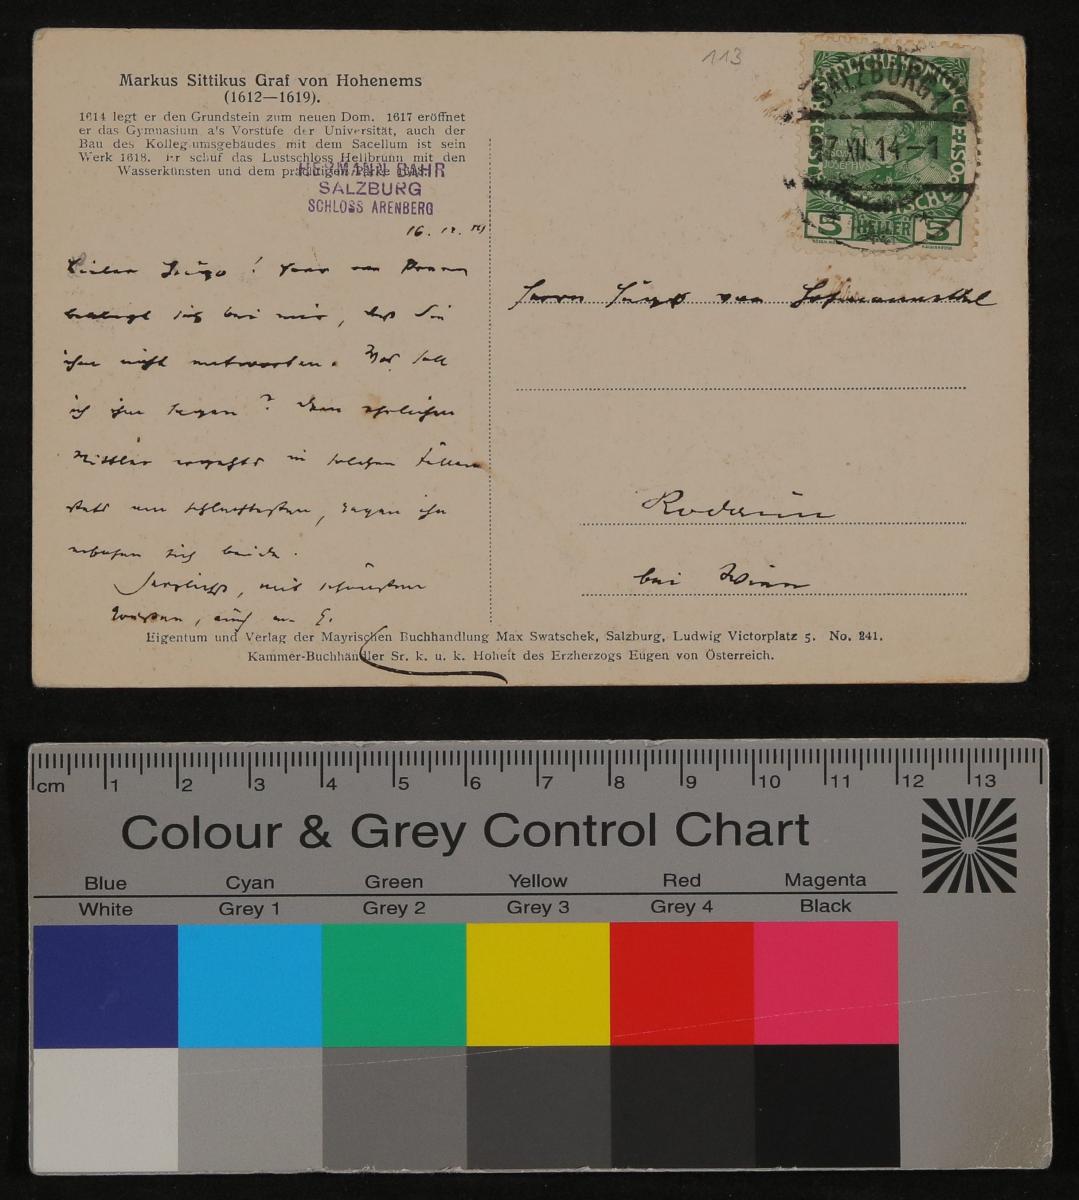 113
Markus Sittikus Graf von Hohenems
(1612—1619).
1614 legt er den Grundstein zum neuen Dom. 1617 eröffnet
er das Gymnasium als Vorstufe der Universität, auch der
Bau des Kollegiumsgebäudes mit dem Sacellum ist sein
Werk 1618. Er schuf das Lustschloss Hellbrunn mit den
Wasserkünsten und dem prächtigen Parke
HERMANN BAHR
SALZBURG
SCHLOSS ARENBERG
SALZBURG 1
XII 14
5 HELLER 5
16. 12. 14
Lieber Hugo!
beklagt sich bei mir, daß Sie
ihm nicht antworten. Was soll
ich ihm sagen? Dem ehrlichen
Mittler ergehts in solchen Fällen
stets am schlechtesten, gegen ihn
erbosen sich beide.
Herzlichst, mit schönsten
Grüßen, auch an G.
Herrn Hugo von Hofmannsthal
Rodaun
bei Wien
Eigentum und Verlag der Mayrischen Buchhandlung Max Swatschek, Salzburg, Ludwig Victorplatz 5. No. 241.
Kammer-Buchhändler Sr. k. u. k. Hoheit des Erzherzogs Eugen von Österreich.
cm 1 2 3 4 5 6 7 8 9 10 11 12 13
Colour & Grey Control Chart
Blue Cyan Green Yellow Red Magenta
White Grey 1 Grey 2 Grey 3 Grey 4 Black